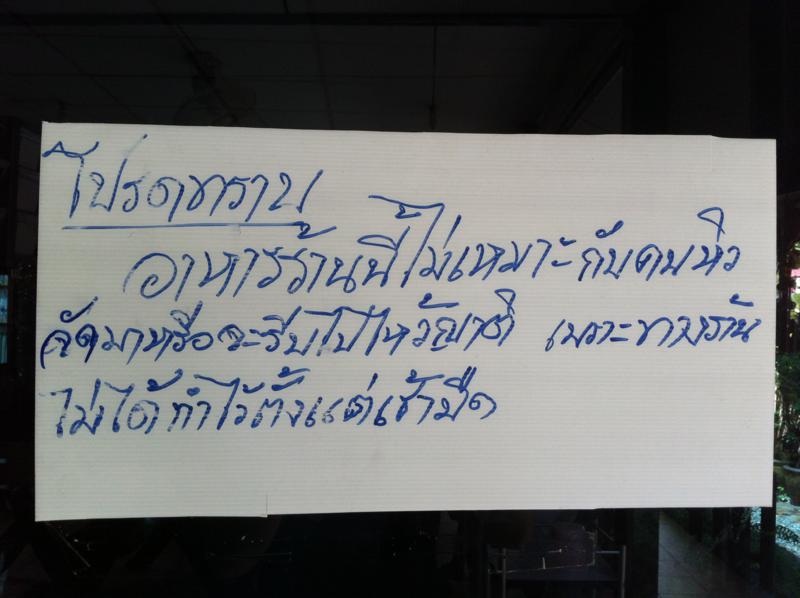 โปรดทราบ
อาหารร้านนี้ไม่เหมาะกับคนหิว
จัดมาหรือจะรีบไปไหว้ญาติ เพราะทางร้าน
ไม่ได้ทำไว้ตั้งแต่เช้ามืด